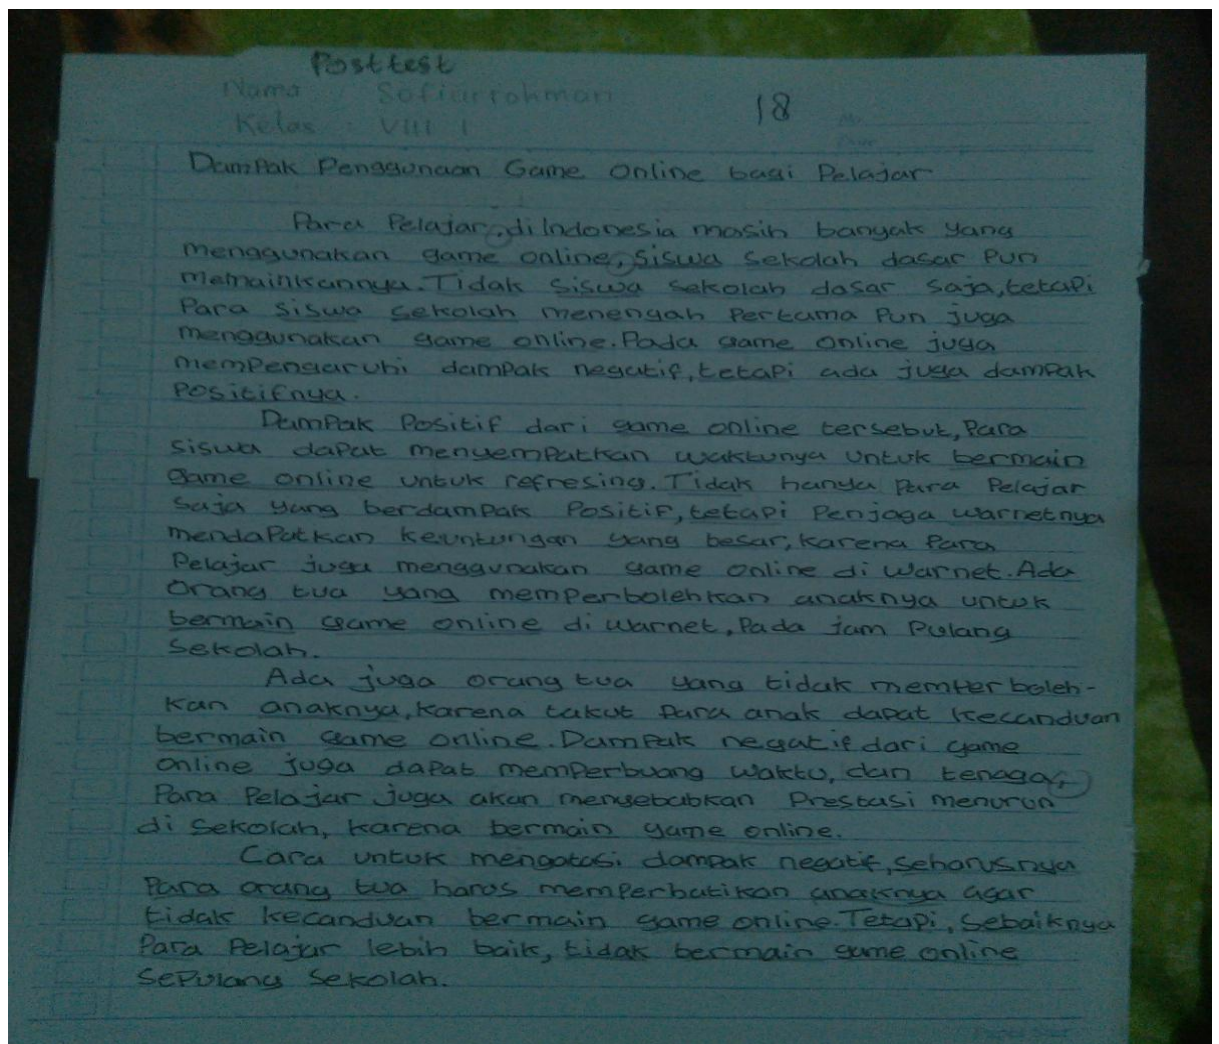 Posttest
Nama Sofiurrohman
Kelas : VIII 1
18
Dampak Penggunaan Game Online bagi Pelajar
Para Pelajar, di Indonesia masih banyak yang
menggunakan game online, siswa sekolah dasar pun
memainkannya. Tidak siswa sekolah dasar saja, tetapi
Para siswa sekolah menengah pertama pun juga
menggunakan game online. Pada game online juga
mempengaruhi dampak negatif, tetapi ada juga dampak
Positifnya.
Dampak Positif dari game online tersebut, Para
siswa dapat menyempatkan waktunya untuk bermain
game online untuk refresing. Tidak hanya para Pelajar
saja yang berdampak Positif, tetapi Penjaga warnetnya
mendapatkan keuntungan yang besar, karena Para
Pelajar juga menggunakan game online di warnet. Ada
Orang tua yang memperbolehkan anaknya untuk
bermain game online di warnet, Pada jam Pulang
Sekolah.
Ada juga orang tua yang tidak memperboleh-
kan anaknya, karena takut para anak dapat kecanduan
bermain game online. Dampak negatif dari game
online juga dapat memperbuang waktu, dan tenaga,
Para Pelajar juga akan menyebabkan Prestasi menurun
di Sekolah, karena bermain game online.
Cara untuk mengatasi dampak negatif, seharusnya
Para orang tua harus memperhatikan anaknya agar
tidak kecanduan bermain game online. Tetapi, sebaiknya
Para Pelajar lebih baik, tidak bermain game online
Sepulang Sekolah.